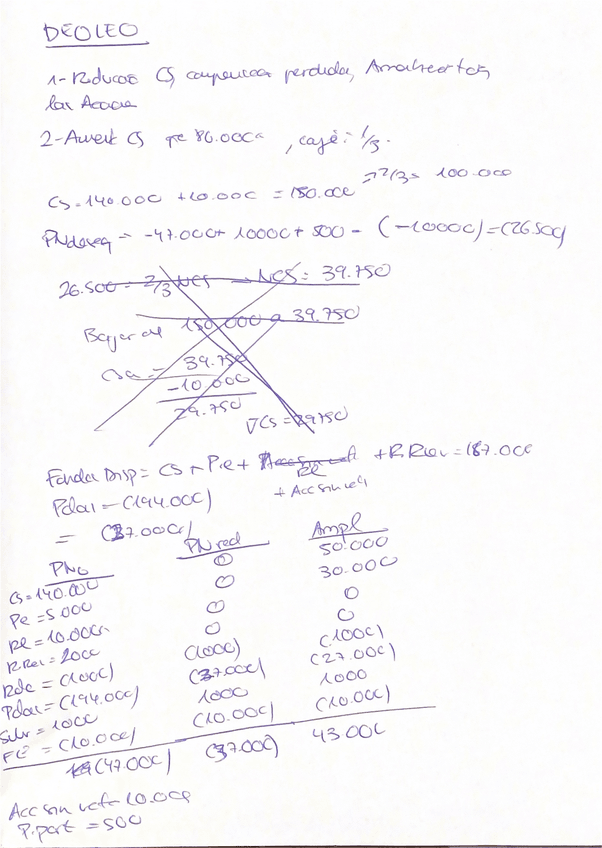 DEOLEO
1- Reducir CS, compensar perdida,
las
2- CS 80.000 , caja: 1/3.
CS = 140.000 + 10.000 = 150.000 → 2/3 = 100.000
= -47.000 + 10000 + 500 - (-10000) = (26.500)
26.500 = 2/3 NCS → NCS = 39.750
Bajar de 150.000 a 39.750
39.750
-10.000
29.750
∇CS = 29750
Disp = CS + Pe + RL + R.Rev = 187.000
+ Acc sin
Pdas = (194.000)
= (37.000)
PNo PN red Ampl
CS = 140.000 0 50.000
Pe = 5.000 0 30.000
RL = 10.000 0 0
R.Rev = 2000 0 0
Rdc = (1000) (1000) (1000)
Pdas = (194.000) (37.000) (27.000)
= 1000 1000 1000
FE = (10.000) (10.000) (10.000)
(47.000) (37.000) 43.000
Acc sin = 10.000
P. part = 500